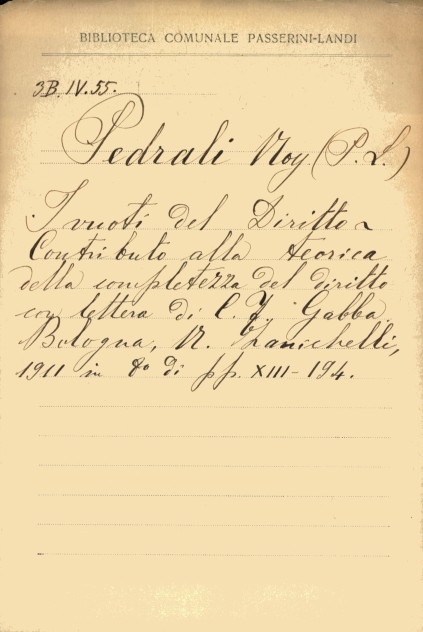 BIBLIOTECA COMUNALE PASSERINI-LANDI
3B. IV. 55.
Pedrali Noy (P. L.)
I vuoti del Diritto ~
Contributo alla teorica
della completezza del diritto
con lettera di C. F. Gabba
Bologna, N. Zanichelli,
1911 in 8º di pp. XIII-194.